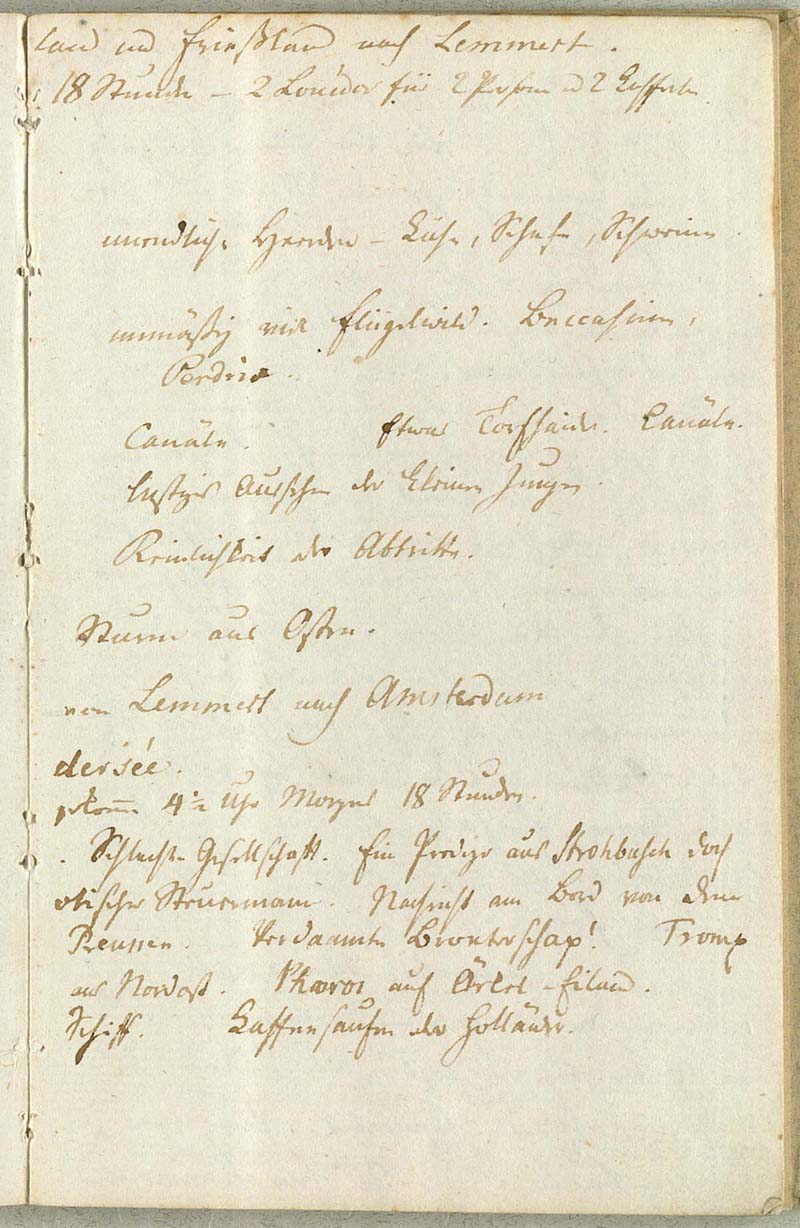 land und Frießland nach Lemmert.
18 Stunden – 2 Louisdor für 2 Personen u 2 Kofferten
unendliche Heerden – Kühe, Schafe, Schweine.
unmäßig viel Flügelwild. Beccasinen,
Perdrix.
Canäle. Etwas Torfheide. Canäle.
lustiges Aussehen der kleinen Jungen.
Reinlichkeit der Abtritte.
Sturm aus Osten.
von Lemmert nach Amsterdam
dersée.
4½ Uhr Morgens 18 Stunden.
. Schlechte Gesellschaft. Ein Prediger aus Strohbusch doch
otischer Steuermann. Nachricht am Bord von dem
Preussen. Verdaamte Brouterschap! Tromp
aus Nordost. Pharos auf Ärkel-Eiland.
Schiff. Kaffeesaufen der Holländer.